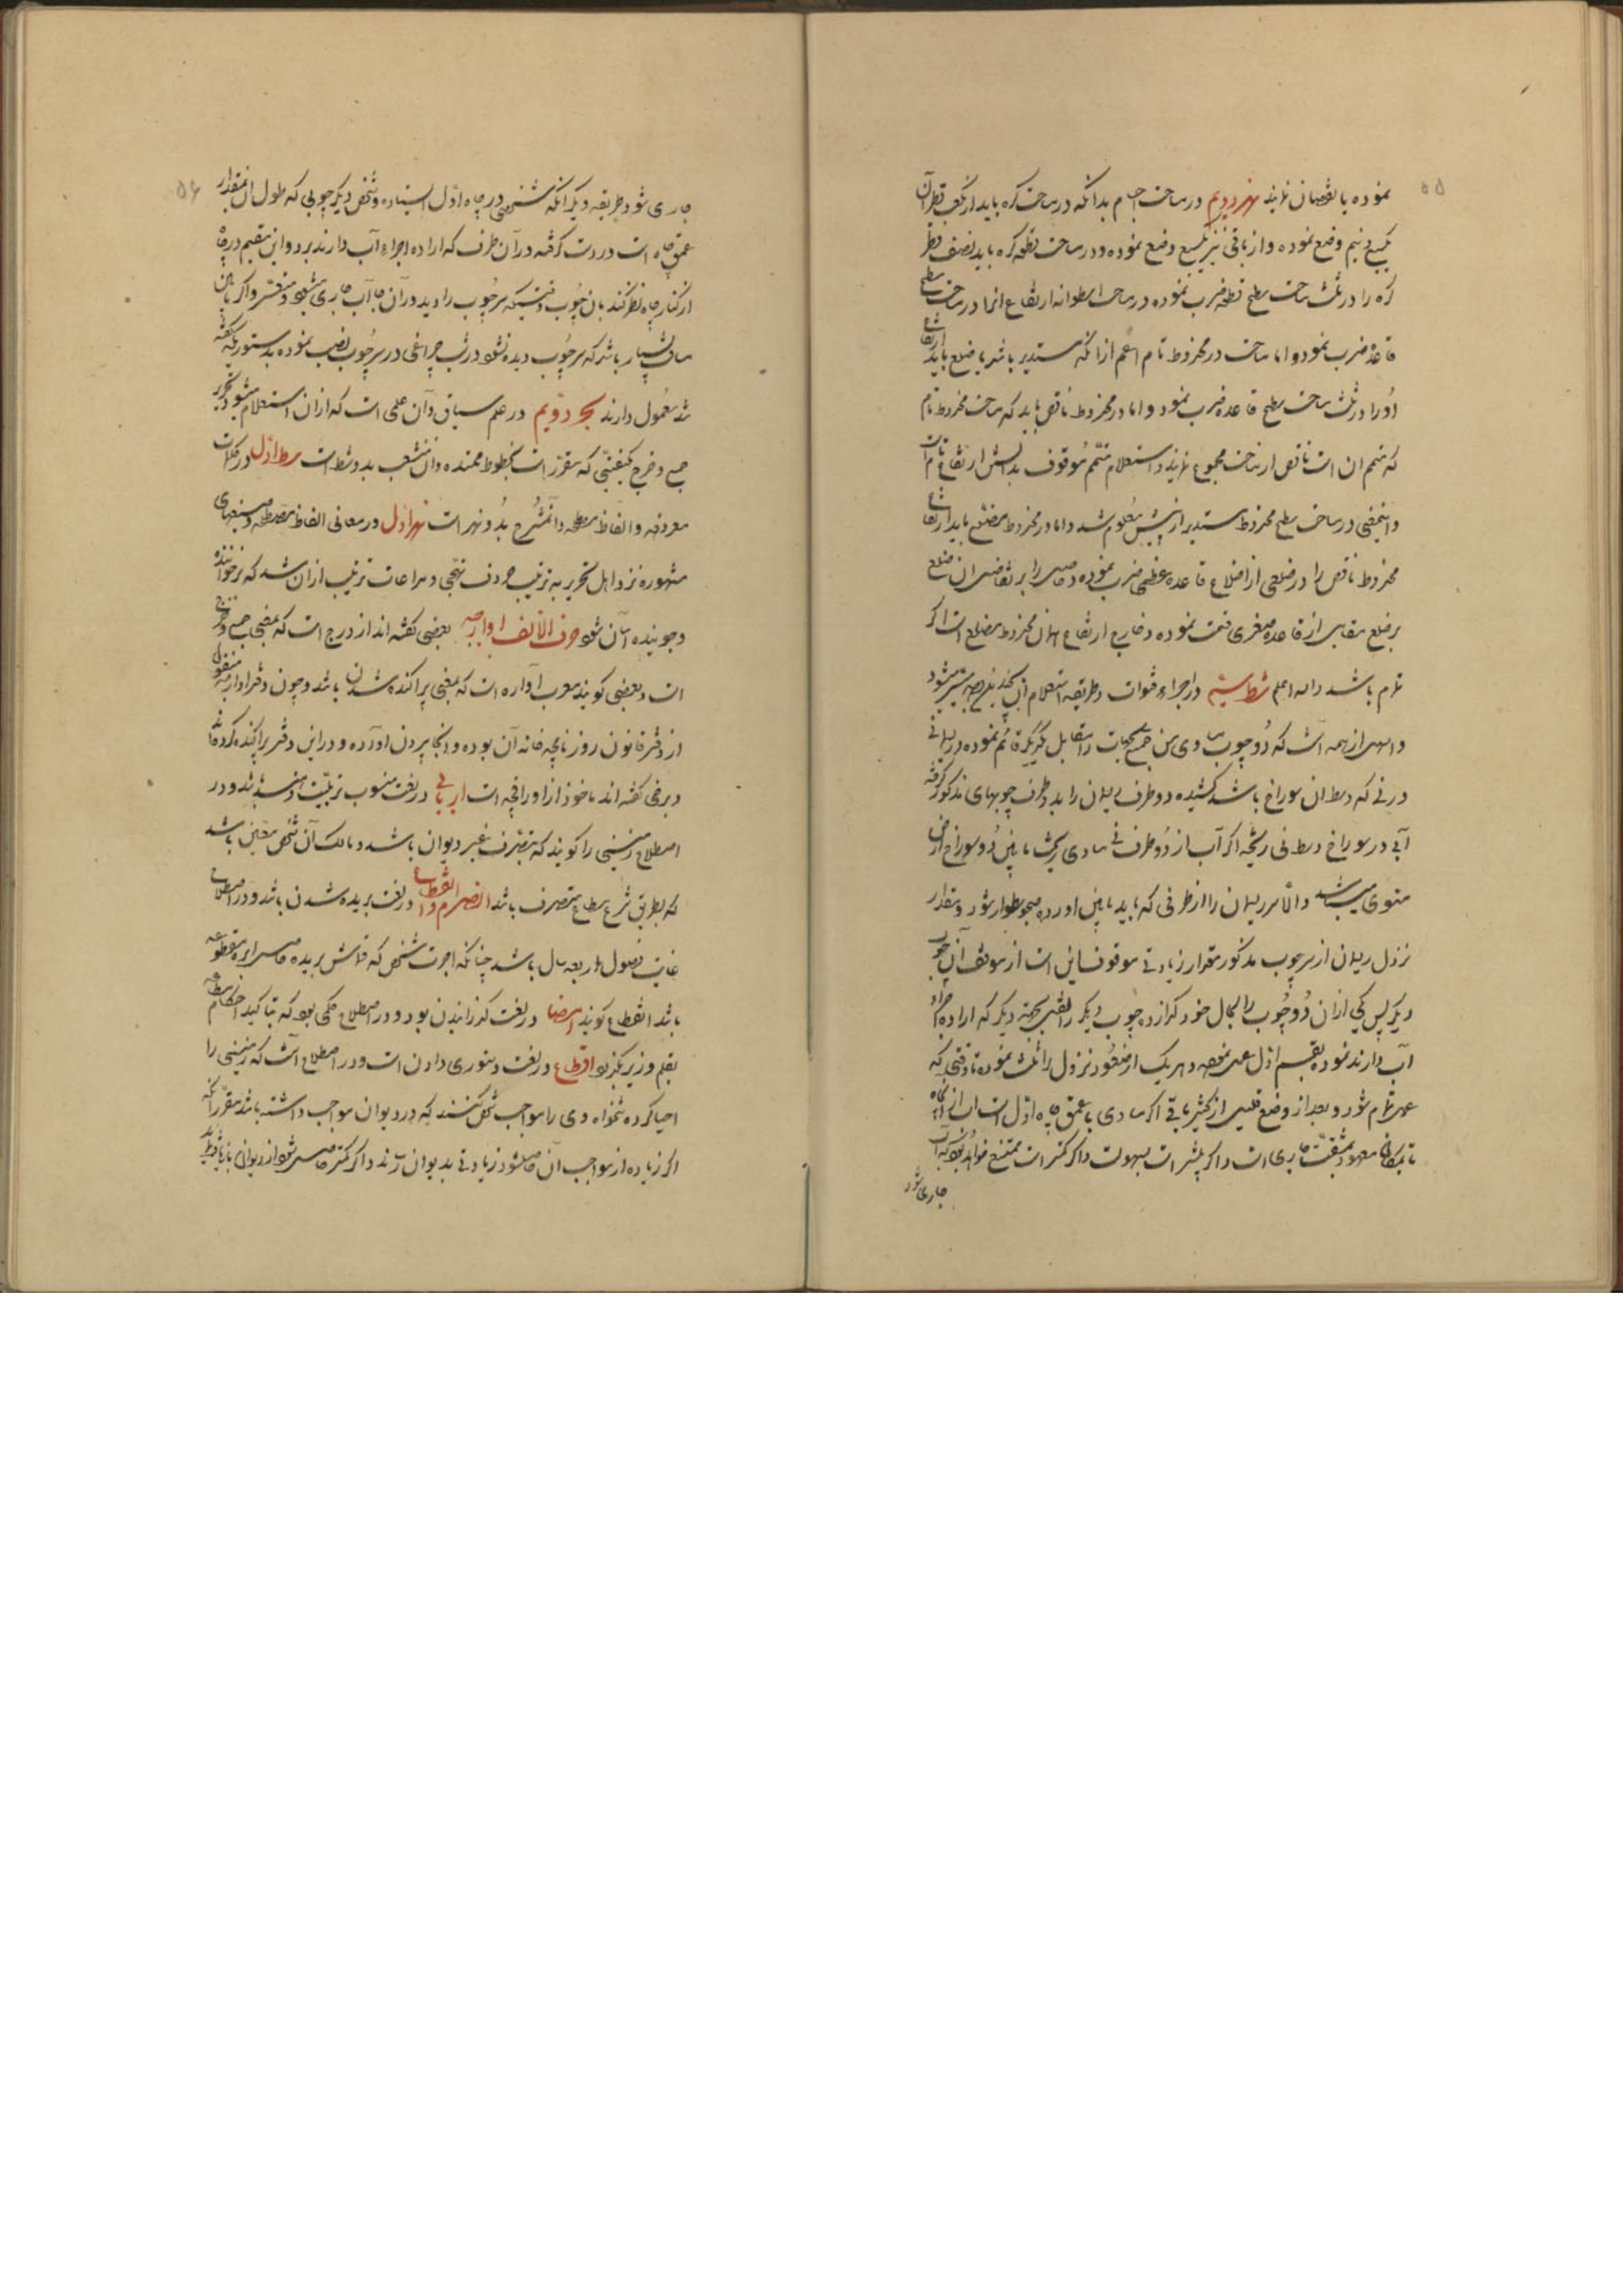 ۵۵
نموده یا نقصان نمایند نهر دویم در مساحت اجسام بدانکه در مساحت کره باید از مکعب قطر آن
یکسبع و نیم وضع نموده و از باقی نیز یکسبع وضع نموده و در مساحت قطعه کره باید نصف قطر
کره را در ثلث مساحت سطح قطعه ضرب نموده در مساحت اسطوانه ارتفاع انرا در مساحت سطح
قاعده ضرب نمود و اما مساحت در مخروط تام اعم از انکه مستدیر باشد یا مضلع باید ارتفاع
او را در ثلث مساحت سطح قاعده ضرب نمود و اما در مخروط ناقص باید که مساحت مخروط تام
که متمم ان است ناقص از مساحت مجموع نمایند و استعلام متمم موقوف بدانستن ارتفاع تام است
و اینمعنی در مساحت سطح مخروط مستدیر از پیش معلوم شد و اما در مخروط مضلع باید ارتفاع
مخروط ناقص را در ضلعی از اضلاع قاعده عظمی ضرب نموده و حاصل را بر تفاضل ان ضلع
بر ضلع مقابل از قاعده صغری قسمت نموده و خارج ارتفاع همان مخروط مضلع است اگر
تام باشد والله اعلم شط سیم در اجراء قنوات و طریقه استعلام آن بچند نهج میسر میشود
و اسهل از همه آنست که دو چوب مساوی من جمیع الجهات را مقابل یکدیگر قائم نموده و ریسمانی
در نی که وسط ان سوراخ باشد کشیده دو طرف ریسمان را بدو طرف چوبهای مذکور گرفته
آبی در سوراخ وسط نی ریخته اگر آب از دو طرف نی مساوی ریخت مابین دو سوراخ ارض
مستوی میباشد والا سر ریسمان را از طرفی که باید پایین اورده هموار شود و مقدار
نزول ریسمان از سر چوب مذکور مقدار زیادتی موقف این است از موقف آن چوب
دیگر پس یکی از ان دو چوب را بحال خود گذارد و چوب دیگر را نقل بجهت دیگر که اراده اجراء
آب دارند نموده بقسم اول عمل نموده و هریک از صعود و نزول را ثبت نموده تا وقتی که
عمل تمام شود و بعد از وضع قلیل از کثیر باقی اگر مساوی با عمق چاه اول است آب از آن چاه
تا بمکان معهود بمشقت جاری است و اگر بیشتر است بسهولت و اگر کمتر است ممتنع خواهد بود که آب
جاری شود
۵۶
جاری شود و طریقه دیگر انکه شخصی در چاه اول ایستاده و شخص دیگر چوبی که طول ان بمقدار
عمق چاه است در دست گرفته در آن طرف که اراده اجراء آب دارند برود و این مقیم در چاه
از کنار چاه نظر کند بان چوب وقتیکه سر چوب را دید در آن جا آب جاری میشود و مفتر و اگر مابین
مسافت بسیار باشد که سر چوب دیده نشود در شب چراغی در سر چوب نصب نموده بدستوریکه گفته
شد معمول دارند بحر دویم در علم سیاق و آن علمی است که از ان استعلام میشود تحریر
جمع و خرج بکیفیتی که مقرر است بخطوط ممتده و ان منشعب بدو شط است شط اول در کلمات
معروفه و الفاظ مصطلحه و آن مشرح بدو نهر است نهر اول در معانی الفاظ مصطلحه و صیغهای
مشهوره نزد اهل تحریر به ترتیب حروف تهجی و مراعات ترتیب از ان شد که بر خواننده
و جوینده آسان شود حرف الالف اوارجه بعضی گفته اند از درج است که بمعنی جمع و خرج
است و بعضی گویند معرب آواره است که بمعنی پراکنده شدن باشد و چون دفتر اوارجه منقول
از دفتر قانون روزنامچه خانه آن بوده و انجا بیرون اورده و در این دفتر پراکنده کرده اند
و برخی گفته اند ماخوذ از اوراقچه است اربابی در لغت منسوب تربیت و مربی باشد و در
اصطلاح زمینی را گویند که بتصرف غیر دیوان باشد و مالک آن شخص معین باشد
که بطریق شرع مطاع متصرف باشد انصرام و انقطاع در لغت بریده شدن باشد و در اصطلاح
غایت فصول اربعه سال باشد چنانکه اجرت شخص که قماش بریده حاصل اجره مقطوعه
باشد انقطاع گویند امضا در لغت گذرانیدن بود و در اصطلاح حکمی بود که بتاکید احکام مطاعه
بقلم وزیر بگذرد اقطاع در لغت دستوری دادن است و در اصطلاح آنست که زمینی را
احیا کرده تنخواه وی را مواجب شخصی کنند که در دیوان مواجب داشته باشد مقرر انکه
اگر زیاده از مواجب آن حاصل شود زیادتی بدیوان رساند و اگر کمتر حاصل شود از دیوان بازیافت نماید